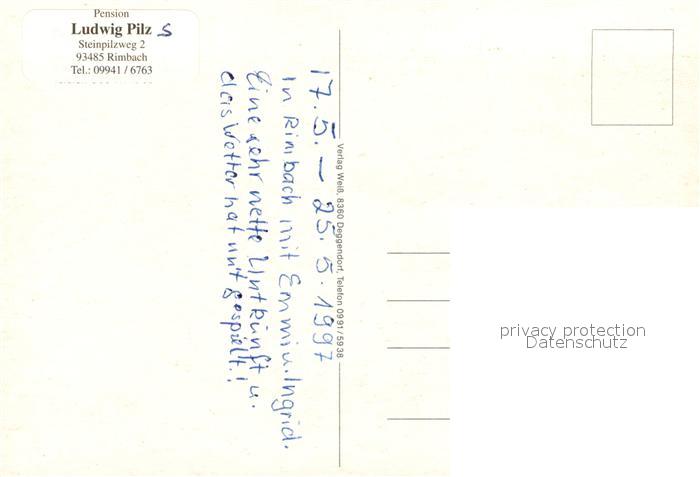 Pension
Ludwig Pilz S
Steinpilzweg 2
93485 Rimbach
Tel.: 09941 / 6763
17.5. – 25.5.1997
In Rimbach mit Emmi u. Ingrid.
Eine sehr nette Untkunft u.
das Wetter hat mit gespielt!
Verlag Weiß, 8360 Deggendorf, Telefon 0991/5938
privacy protection
Datenschutz